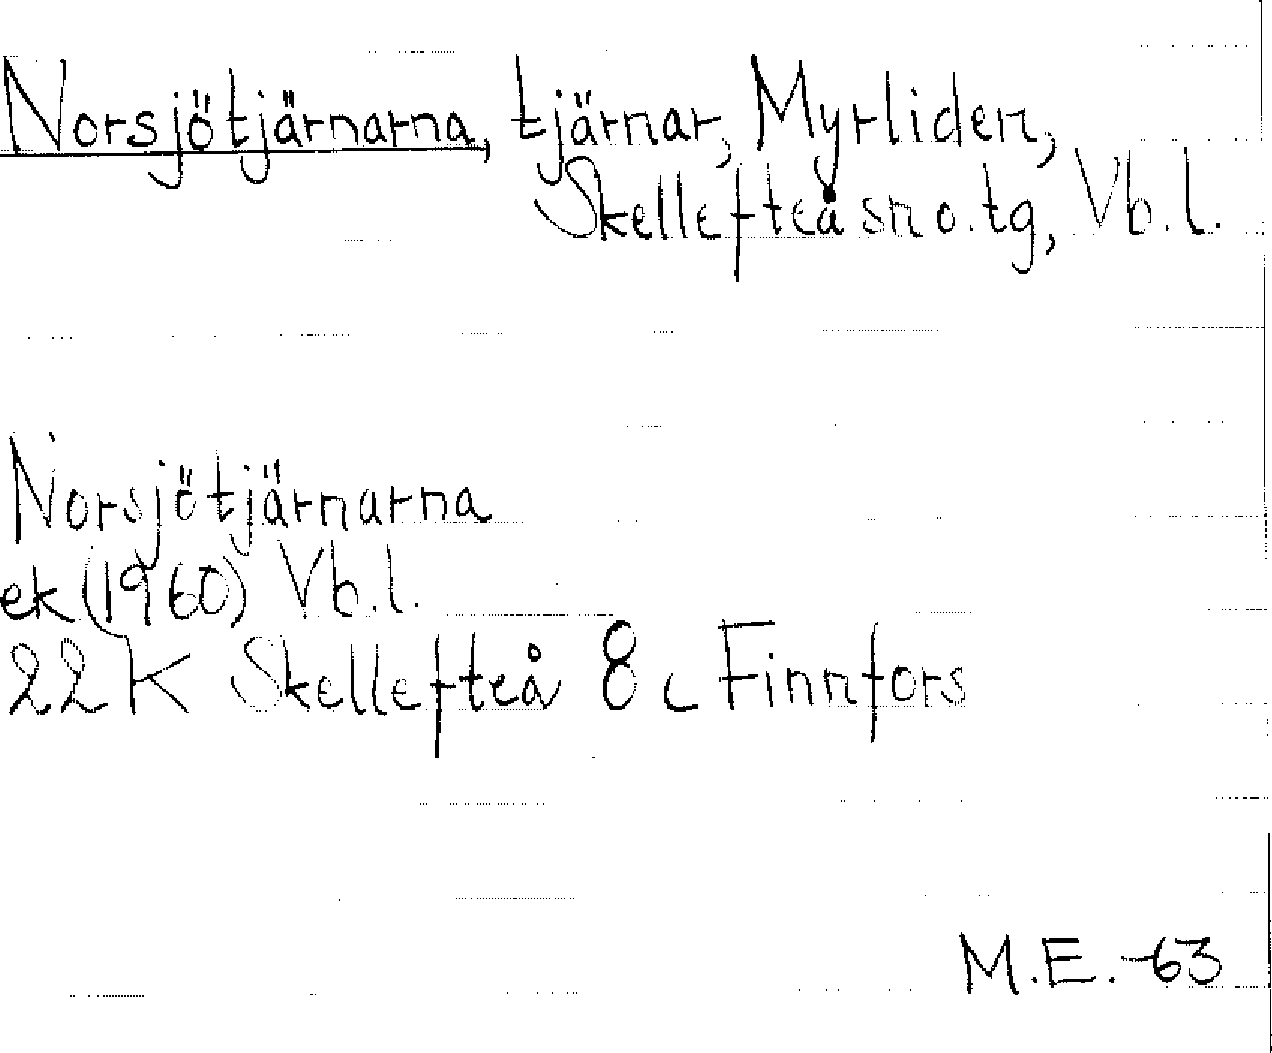 Norsjötjärnarna, tjärnar, Myrliden,
Skellefteå sn o. tg, Vb. l.
Norsjötjärnarna
ek (1960) Vb. l.
22 K Skellefteå 8 c Finnfors
M.E. -63